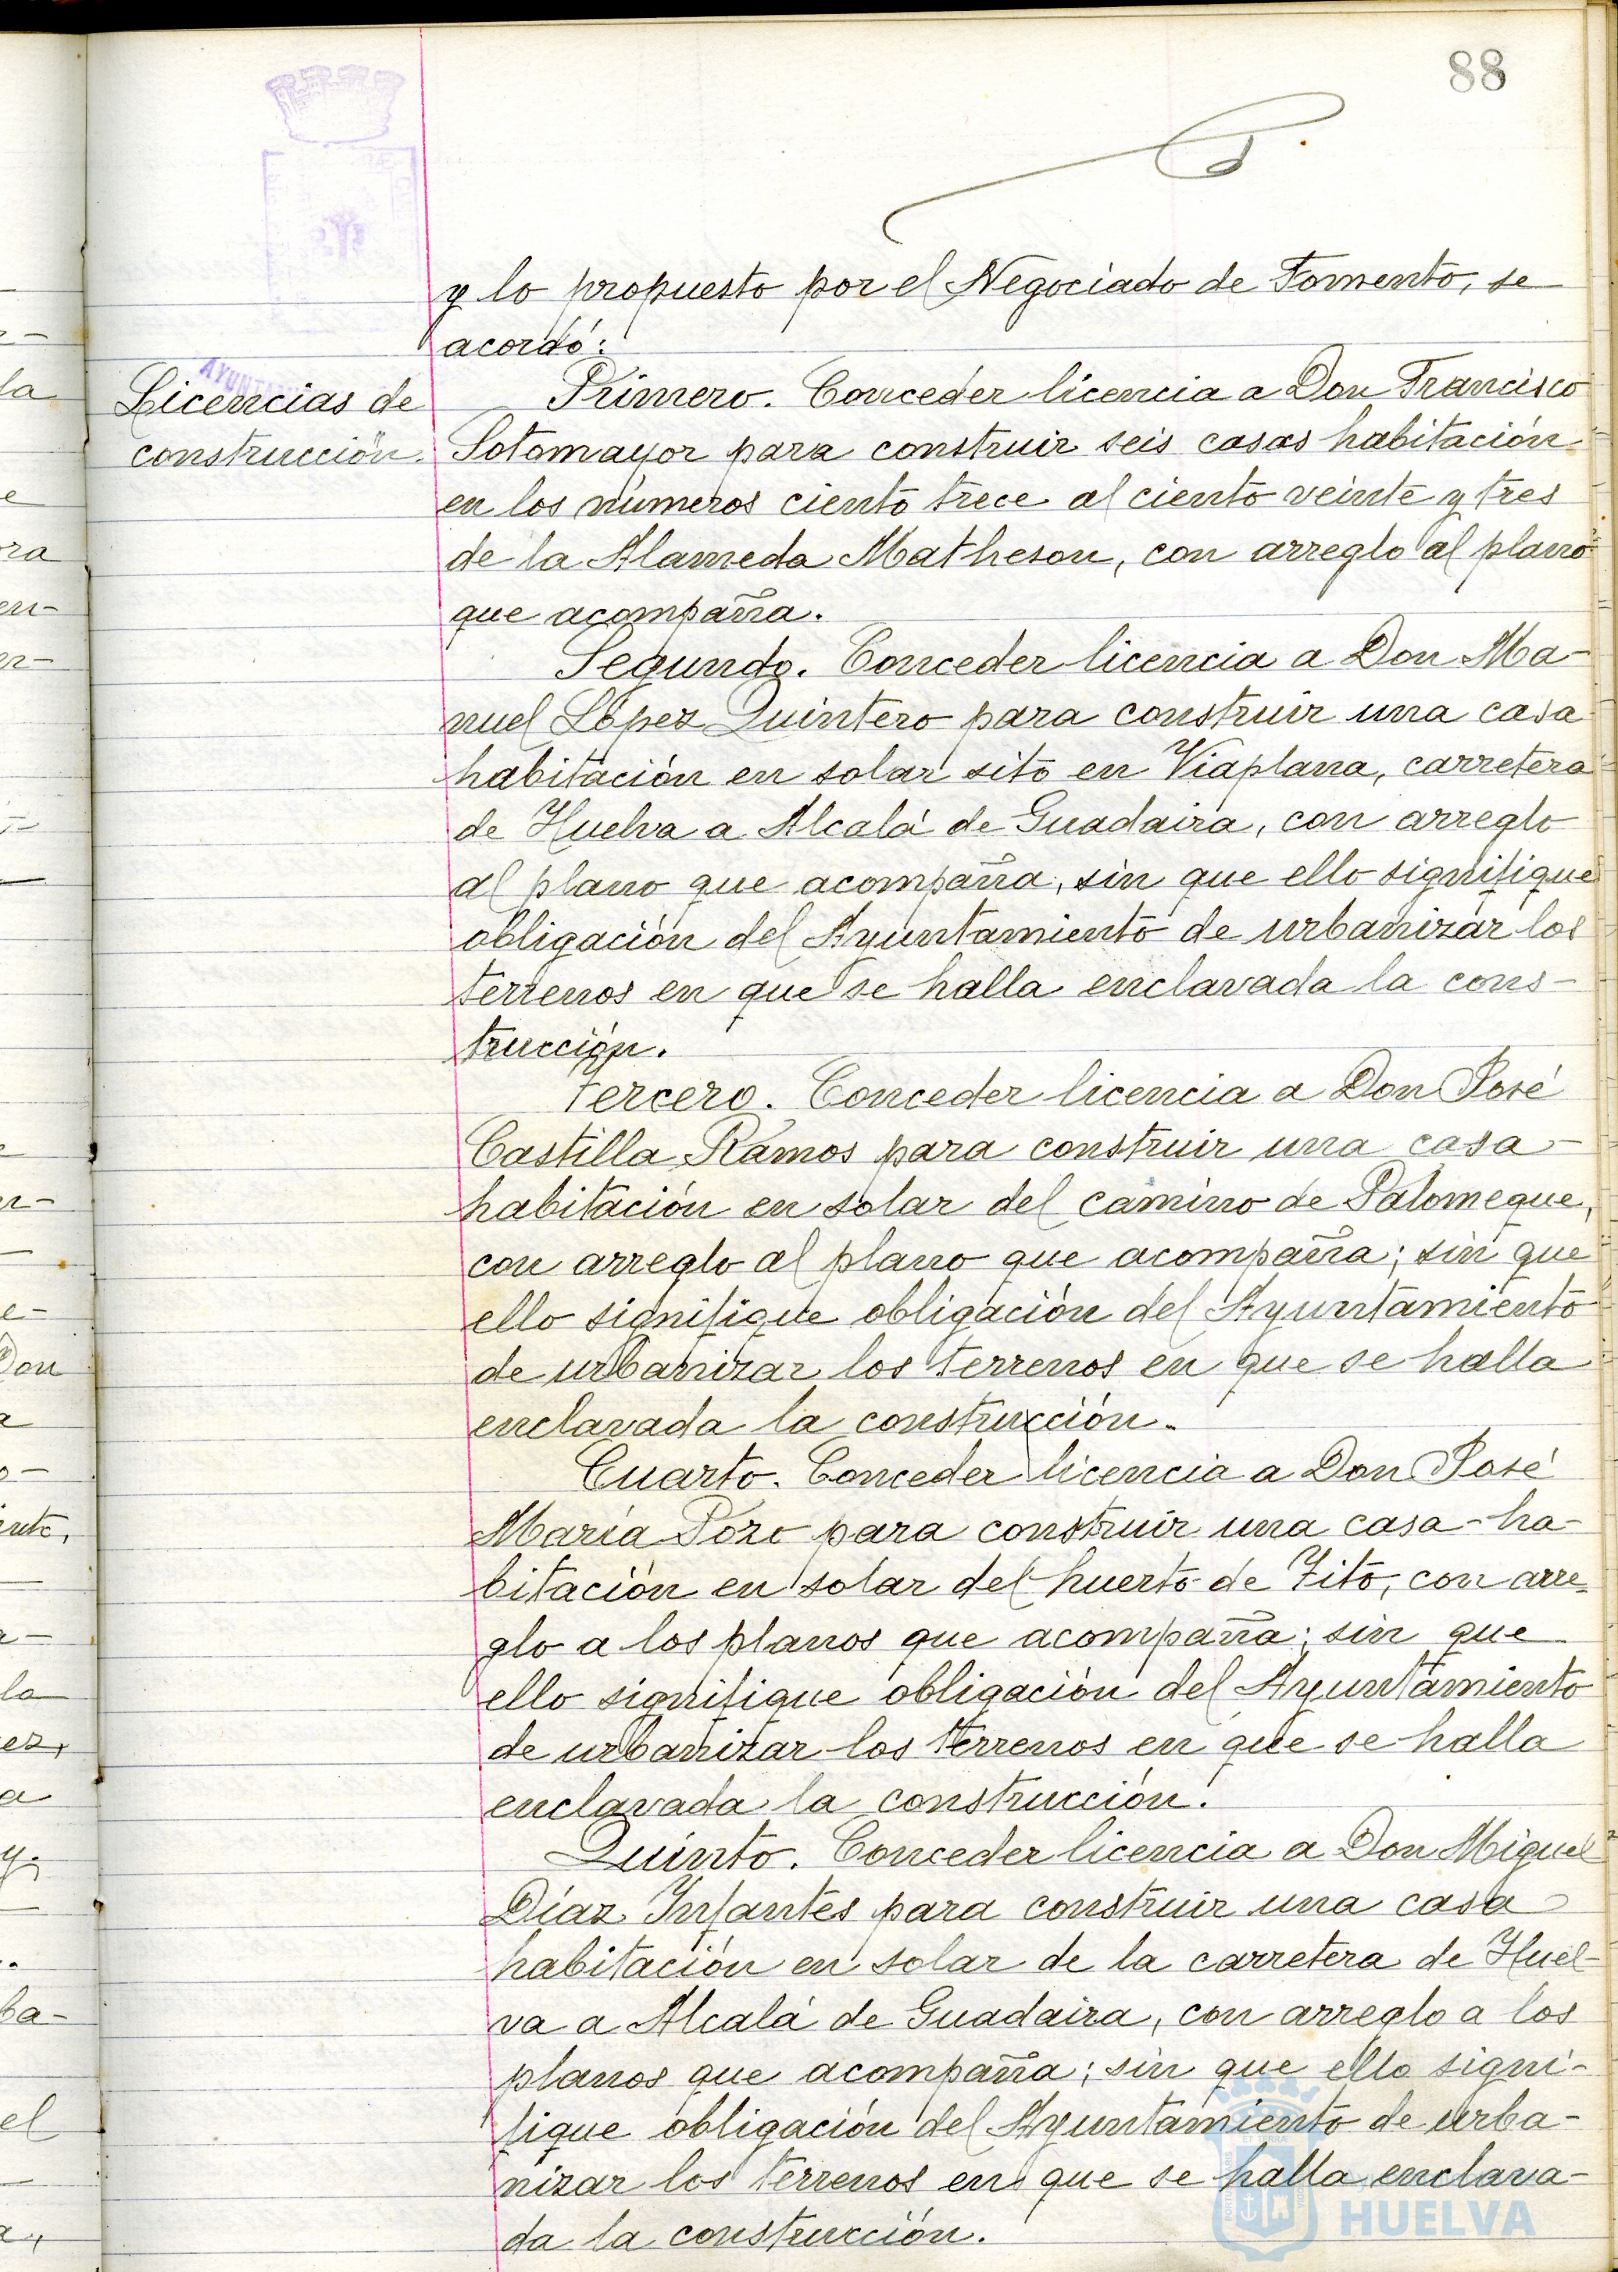 88
y lo propuesto por el Negociado de Fomento, se
acordó:
Licencias de
construcción.
Primero. Conceder licencia a Don Francisco
Sotomayor para construir seis casas habitación
en los números ciento trece al ciento veinte y tres
de la Alameda Matheson, con arreglo al plano
que acompaña.
Segundo. Conceder licencia a Don Ma-
nuel López Quintero para construir una casa
habitación en solar sito en Viaplana, carretera
de Huelva a Alcalá de Guadaira, con arreglo
al plano que acompaña, sin que ello signifique
obligación del Ayuntamiento de urbanizar los
terrenos en que se halla enclavada la cons-
trucción.
Tercero. Conceder licencia a Don José
Castilla Ramos para construir una casa-
habitación en solar del camino de Palomeque,
con arreglo al plano que acompaña; sin que
ello signifique obligación del Ayuntamiento
de urbanizar los terrenos en que se halla
enclavada la construcción.
Cuarto. Conceder licencia a Don José
María Pozo para construir una casa-ha-
bitación en solar del huerto de Tito, con arre-
glo a los planos que acompaña; sin que
ello signifique obligación del Ayuntamiento
de urbanizar los terrenos en que se halla
enclavada la construcción.
Quinto. Conceder licencia a Don Miguel
Díaz Infantes para construir una casa
habitación en solar de la carretera de Huel-
va a Alcalá de Guadaira, con arreglo a los
planos que acompaña; sin que ello signi-
fique obligación del Ayuntamiento de urba-
nizar los terrenos en que se halla enclava-
da la construcción.
HUELVA